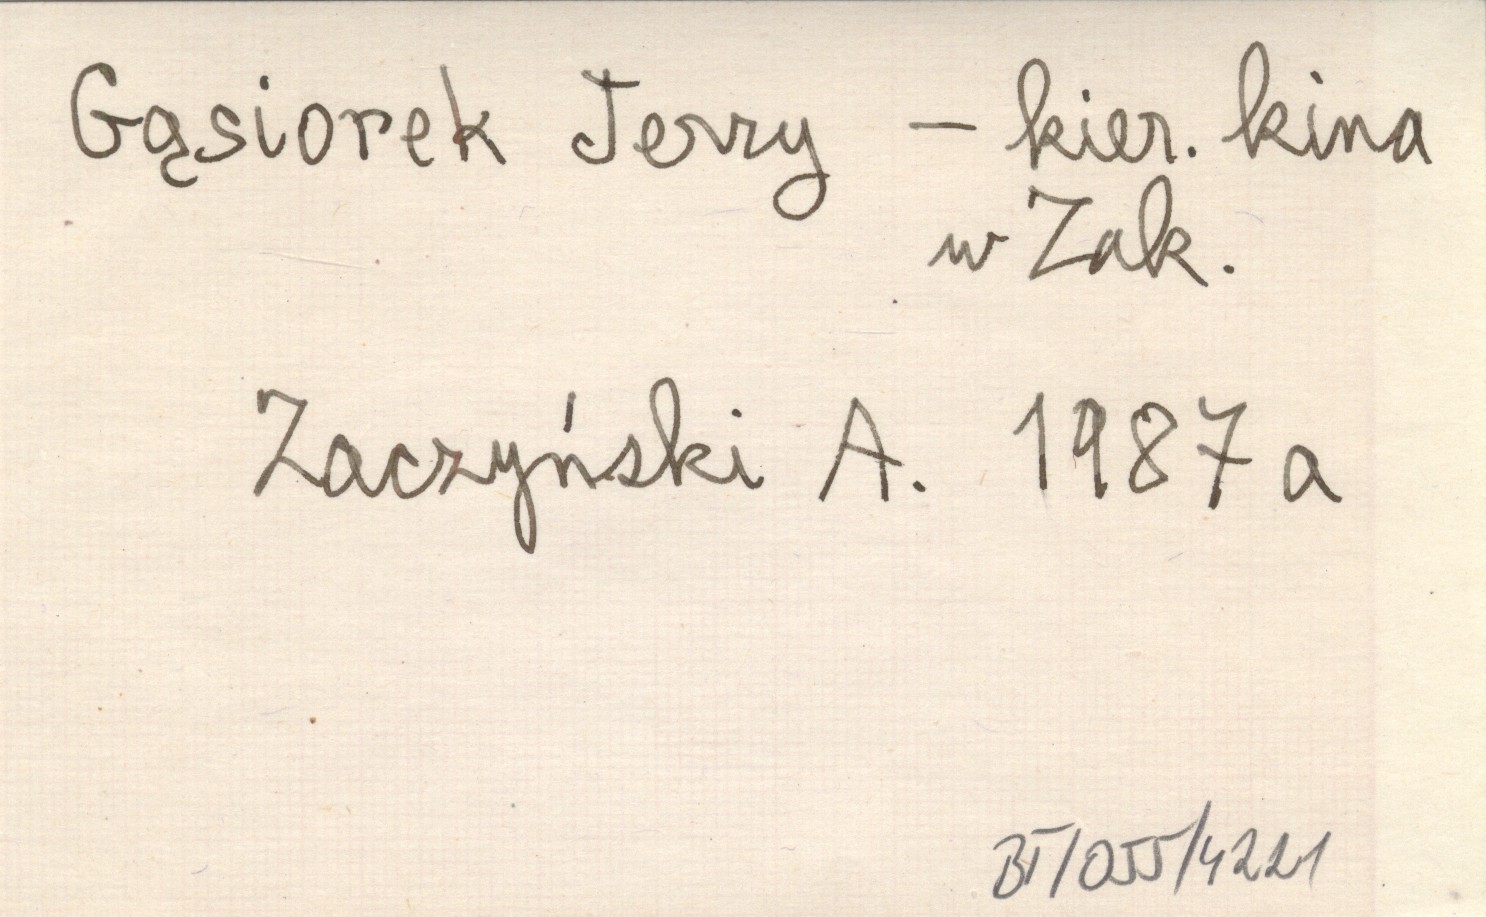 Gąsiorek Jerzy – kier. kina
w Zak.
Zaczyński A. 1987a
BT/055/4221